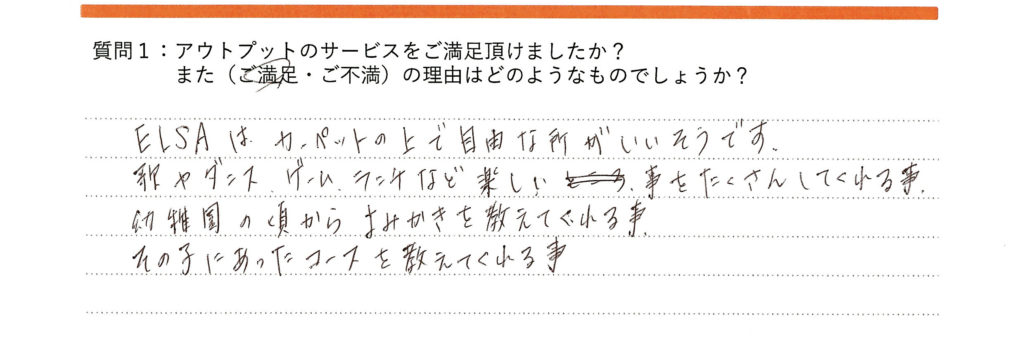 質問１：アウトプットのサービスをご満足頂けましたか？
また（ご満足・ご不満）の理由はどのようなものでしょうか？
ELSAは カーペットの上で自由な所がいいそうです.
歌やダンス、ゲーム、ランチなど楽しい 事をたくさんしてくれる事.
幼稚園の頃からよみかきを教えてくれる事.
その子にあったコースを教えてくれる事